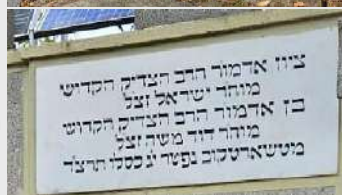 ציון אדמור הרב הצדיק הקדוש
מוהר ישראל זצל
בן אדמור הרב הצדיק הקדוש
מוהר דוד משה זצל
מטשארטקוב נפטר יג כסלו תרצד